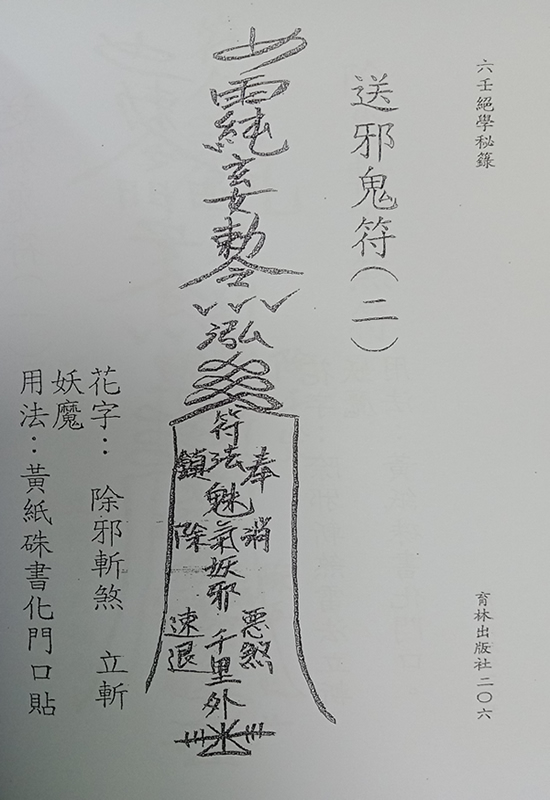 六壬絕學秘籙
育林出版社 二〇六
送邪鬼符(二)
玄女勅令
泓
奉消
惡煞
符法魅氣妖邪千里外
除
速退
花字：除邪斬煞 立斬
妖魔
用法：黃紙硃書化門口貼